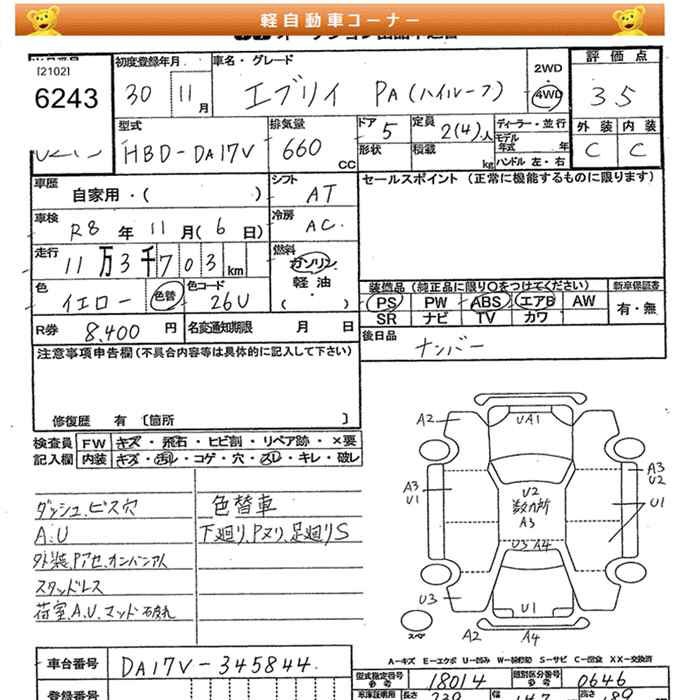 軽自動車コーナー
[2102]
6243
初度登録年月
30 11月
車名・グレード
エブリイ PA(ハイルーフ)
2WD
4WD
評価点
3 5
型式
HBD-DA17V
排気量
660 CC
ドア 5
定員 2(4)人
形状
積載 kg
ディーラー・並行
モデル年式 年
ハンドル 左・右
外装 内装
C C
車歴
自家用・( )
シフト
AT
セールスポイント(正常に機能するものに限ります)
車検
R8年 11月(6日)
冷房
AC
走行
11万3千703km
燃料
ガソリン
軽油
( )
色
イエロー 色替
色コード
26U
装備品(純正品に限り○をつけてください)
新車保証書
PS PW ABS エアB AW
SR ナビ TV カワ
有・無
R券 8,400円
名変通知期限 月 日
後日品
ナンバー
注意事項申告欄(不具合内容等は具体的に記入して下さい)
修復歴 有 〔箇所 〕
検査員記入欄
FW キズ・飛石・ヒビ割・リペア跡・×要
内装 キズ・汚れ・コゲ・穴・スレ・キレ・破レ
ダッシュ、ビス穴
A.U
スタッドレス
荷室、A.U、マッド破れ
色替車
下廻り、Pヌリ、足廻りS
A2
UA1
A3
U1
U2
数カ所
A3
A3
U2
U1
U3 A4
U3
U1
A2
A4
スペア
A-キズ E-エクボ U-凹み W-補修跡 S-サビ C-腐食 XX-交換済
車台番号
DA17V-345844
型式指定番号
18014
類別区分番号
0646
登録番号